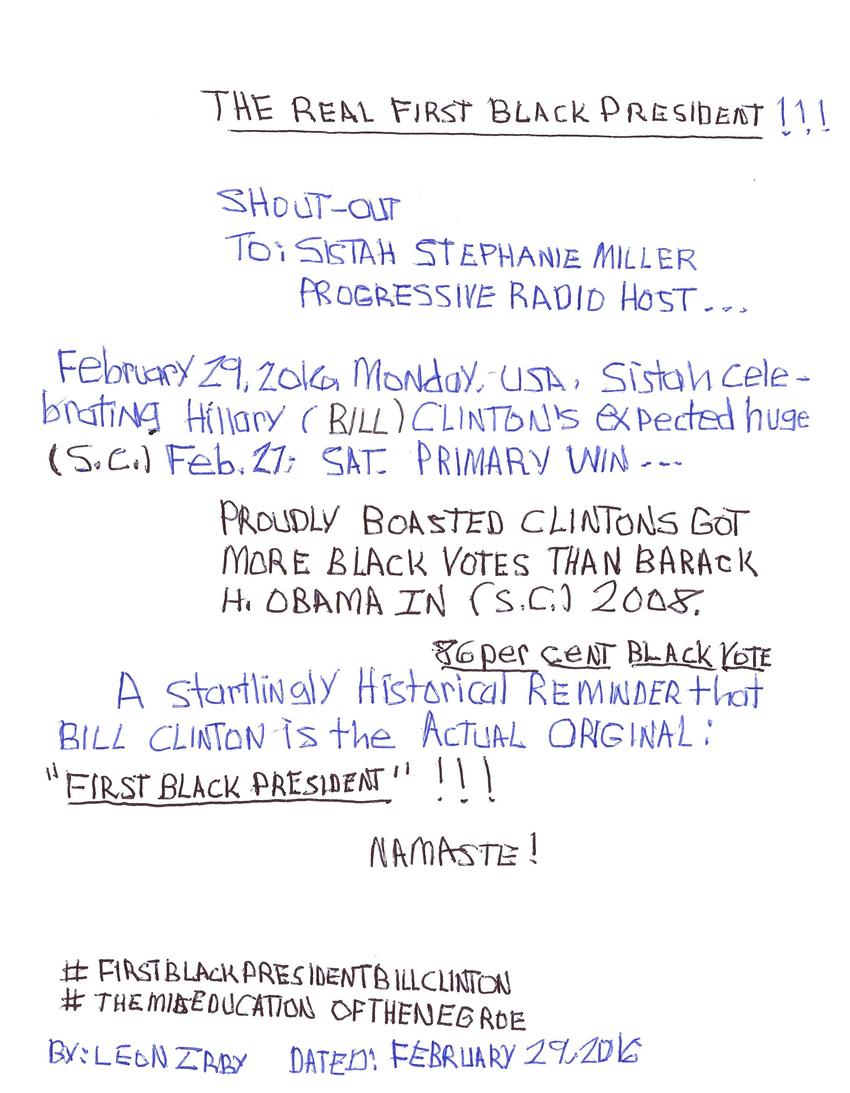 THE REAL FIRST BLACK PRESIDENT !!!
SHOUT-OUT
TO: SISTAH STEPHANIE MILLER
PROGRESSIVE RADIO HOST...
February 29, 2016, Monday, USA, Sistah cele-
brating Hillary (BILL) CLINTON'S expected huge
(S.C.) Feb. 27; SAT. PRIMARY WIN ---
PROUDLY BOASTED CLINTONS GOT
MORE BLACK VOTES THAN BARACK
H. OBAMA IN (S.C.) 2008.
86 per cent BLACK VOTE
A startlingly Historical REMINDER that
BILL CLINTON is the ACTUAL ORIGINAL:
"FIRST BLACK PRESIDENT" !!!
NAMASTE!
# FIRSTBLACKPRESIDENTBILLCLINTON
# THEMISEDUCATION OFTHENEGROE
BY: LEON IRBY DATED: FEBRUARY 29, 2016